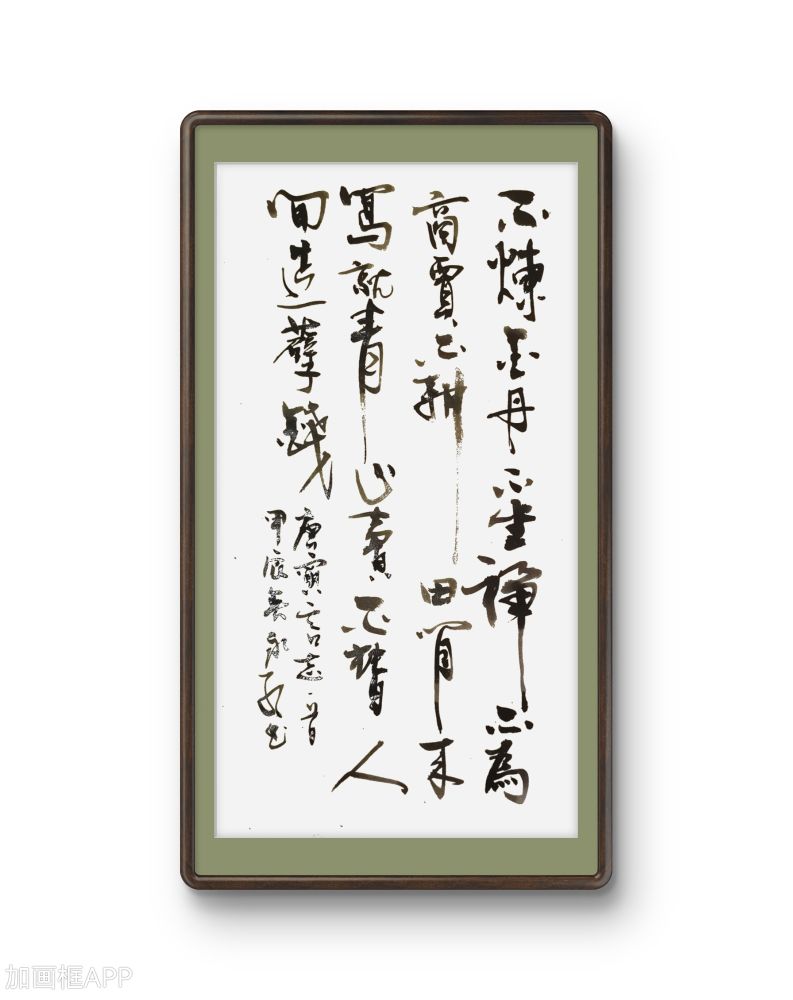 不煉金丹不坐禪不為
商賈不耕田閒來
寫就青山賣不人
間造孽錢
唐寅言志一首
甲辰永書
加画框APP